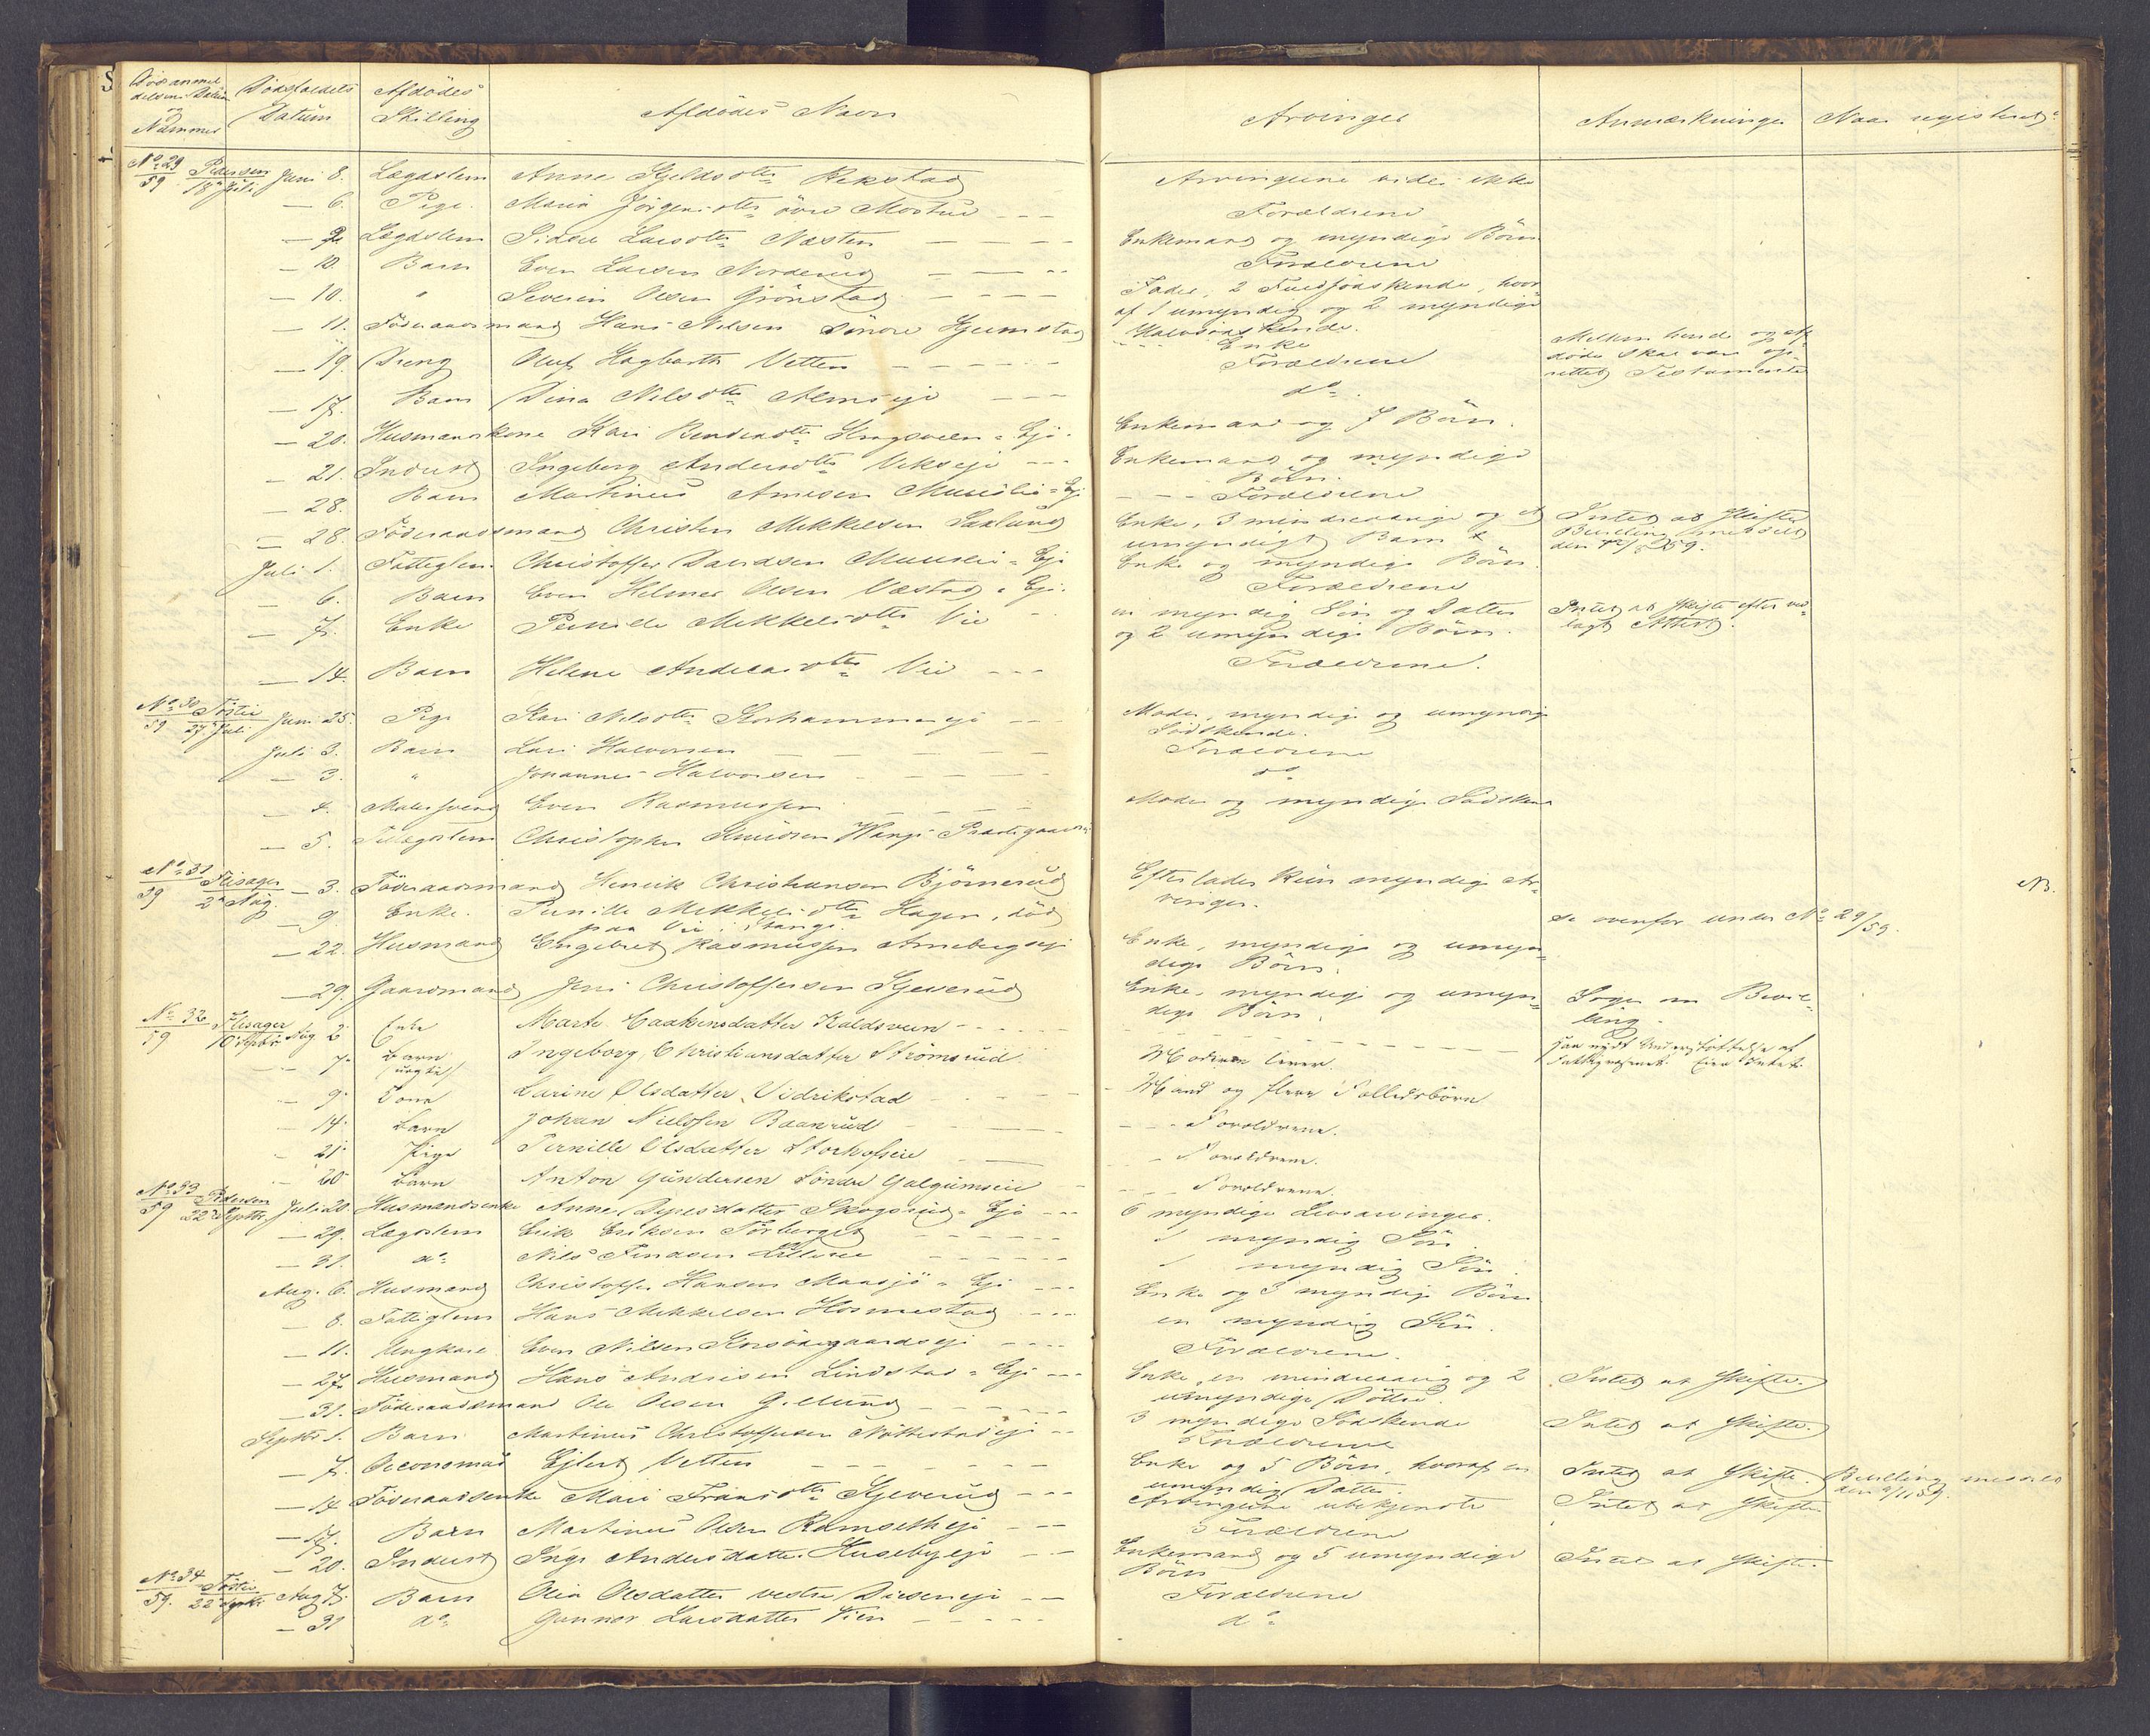 Dødsanmeldelsens Datum og Nummer | Dødsfaldets Datum | Afdødes Stilling | Afdødes Navn | Arvinger | Anmærkninger | Naar registreret
No 29/59 Pedersen 18de Juli Juni 8. Lægdslem Anne Kjeldsdtr Rekstad | Arvingerne vides ikke
— 6. Pige Maria Jörgensdtr övre Mostue | Forældrene
Lægdslem Sidsel Larsdtr Næsten | Enkemand og myndige Börn
— 10. Barn Even Larsen Norderud | Forældrene
— 10. " Severin Olsen Grönstad | Fader, 2 Fuldsödskende, hvor-
af 1 umyndig og 2 myndige
Halvsödskende.
— 11. Föderaadsmand Hans Nilsen söndre Hjemstad | Enke | Mellem hende og af-
døde skal være op-
rettet Testamente
— 19. Dreng Oluf Hagbarth Vetten | Forældrene
— 17. Barn Dina Nilsdtr Almseje | do
— 20. Husmandskone Kari Bendiksdtr Krogsveen-Eje | Enkemand og 7 Börn.
— 21. Inderst Ingeborg Andersdtr Vikseje | Enkemand og myndige
Börn.
— 28. Barn Martinus Arnesen Muuslie-Eje | Forældrene
— 28 Föderaadsmand Christen Mikkelsen Saxlund | Enke, 3 mindreaarige og et
umyndigt Barn | Intet at Skifte
Bevilling meddelt
Juli 1. Fattiglem Christoffer Davidsen Muuslie-Eje | Enke og myndige Börn.
— 6. Barn Even Helmer Olsen Næstad-Eje. | Forældrene
— 7. Enke Pernille Mikkelsdtr Vie | en myndig Sön og Datter
og 2 umyndige Börn. | Intet at Skifte efter ved-
lagt Attest.
— 14. Barn Helene Andreasdtr Vie | Forældrene.
No 30/59 Töstie 27de Juli Juni 25. Pige Kari Nilsdtr Storhammereje | Moder, myndige og umyndige
Södskende.
Juli 3. Barn Lars Halvorsen | Forældrene
— 3. " Johannes Halvorsen | do
— 4. Malersvend Even Rasmussen | Moder og myndige Södskend
— 5. Christopher Knudsen Vangs Præstegaard
No 31/59 Flisager 2de Aug. — 3. Föderaadsmand Henrik Christiansen Björnerud | Efterlader kun myndige Ar-
vinger. | NB.
— 9 Enke. Pernille Mikkelsdtr Hagen, död
paa Vie i Stange. | se ovenfor under No 29/59.
— 22. Husmand Engebret Rasmussen Arnebergeje | Enke, myndige og umyn-
dige Börn.
— 29. Gaardmand Jens Christoffersen Kjeverud | Enke, myndige og umyn-
dige Börn. | Söger om Bevil-
ling.
No 32/59 Flisager 10de Septbr Aug 2 Enke Marte Haakensdatter Koldsveen | har nydt Understöttelse af
Fattigvæsenet. Eier Intet.
— 7. Barn (uægte) Ingeborg Christiansdatter Strömsrud | Moderen lever.
— 9. Kone Karine Olsdatter Vidrikstad | Mand og flere Fællesbörn
— 14. Barn Johan Nielssen Baanrud | Forældrene.
— 21 Pige Pernille Olsdatter Storhofseie | Forældrene.
— 20 Barn Anton Gundersen Söndre Galgumseie | Forældrene.
No 33/59 Pedersen 22de Septbr Juli 20. Husmandsenke Anne Dyresdatter Skogsrud-Eje | 6 myndige Livsarvinger.
— 29. Lægdslem Erik Eriksen Torberget | 1 myndig Sön
— 31. do Nils Findsen | 1 myndig Sön.
Aug. 6. Husmand Christoffer Hansen Maasjö-Eje | Enke og 3 myndige Börn
— 8. Fattiglem Hans Mikkelsen Hosmestad | en myndig Sön.
— 11. Ungkarl Even Nilsen Korsödegaardseje | Forældrene.
— 27. Husmand Hans Andersen Lindstad-Eje | Enke, en mindreaarig og 2
umyndige Döttre. | Intet at Skifte.
— 31. Föderaadsmand Ole Olsen Gillund | 3 myndige Södskende | Intet at Skifte.
Septbr 1. Barn Martinus Christoffersen Nöttestadeje | Forældrene
— 7. Oeconomus Ejlert Vetten | Enke og 5 Börn, hvoraf en
umyndig Datter. | Intet at Skifte. | Bevilling meddelt
— 14 Föderaadsenke Mari Fransdtr Kjeverud | Arvingerne ubekjendte | Intet at Skifte
— 17. Barn Martinus Olsen Ramsetheje | Forældrene
— 20. Inderst Inge Andersdatter Husebyeje | Enkemand og 5 umyndige
Börn | Intet at Skifte.
No 34/59. Töstie 22de Septbr Aug 7. Barn Olia Olsdatter vestre Dieseneje | Forældrene
— 31 do Gunnor Larsdatter Vien | do